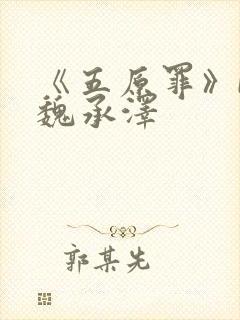 《五原罪》
魏承泽
郭某先